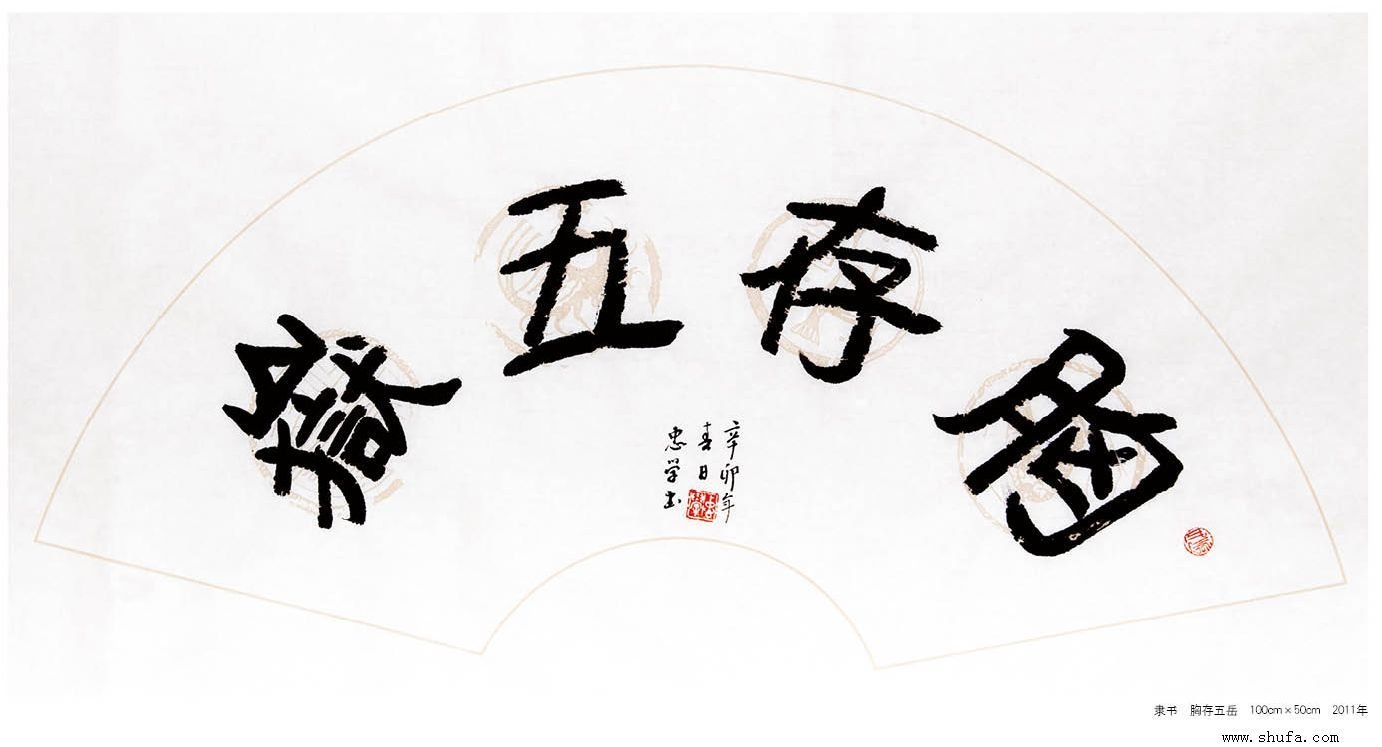 胷存五嶽
辛卯年
春日
忠学书
隶书 胸存五岳 100cm×50cm 2011年
www.shufa.com